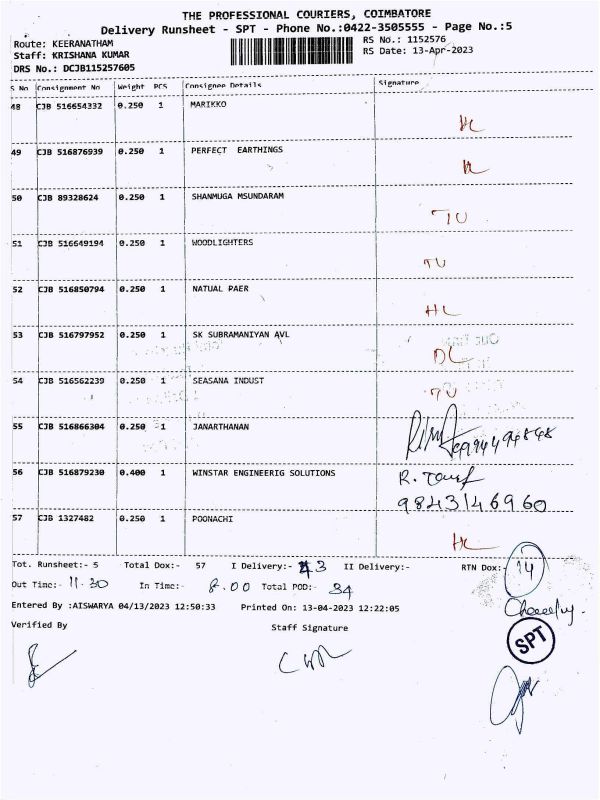 THE PROFESSIONAL COURIERS, COIMBATORE
Delivery Runsheet - SPT - Phone No.:0422-3505555 - Page No.:5
Route: KEERANATHAM RS No.: 1152576
Staff: KRISHANA KUMAR RS Date: 13-Apr-2023
DRS No.: DCJB115257605
S No Consignment No Weight PCS Consignee Details Signature
48 CJB 516654332 0.250 1 MARIKKO
HL
49 CJB 516876939 0.250 1 PERFECT EARTHINGS
HL
50 CJB 89328624 0.250 1 SHANMUGA MSUNDARAM
TU
51 CJB 516649194 0.250 1 WOODLIGHTERS
TU
52 CJB 516850794 0.250 1 NATUAL PAER
HL
53 CJB 516797952 0.250 1 SK SUBRAMANIYAN AVL
DL
54 CJB 516562239 0.250 1 SEASANA INDUST
TU
55 CJB 516866304 0.250 1 JANARTHANAN
56 CJB 516879230 0.400 1 WINSTAR ENGINEERIG SOLUTIONS R.
9843146960
57 CJB 1327482 0.250 1 POONACHI
HL
Tot. Runsheet:- 5 Total Dox:- 57 I Delivery:- 43 II Delivery:- RTN Dox:- 14
Out Time:- 11.30 In Time:- 8.00 Total POD:- 34
Entered By :AISWARYA 04/13/2023 12:50:33 Printed On: 13-04-2023 12:22:05
Verified By Staff Signature
SPT